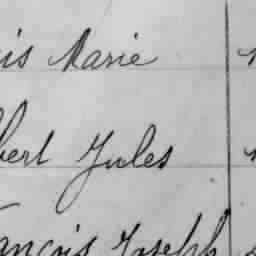 is Marie
bert Jules
ançois Joseph